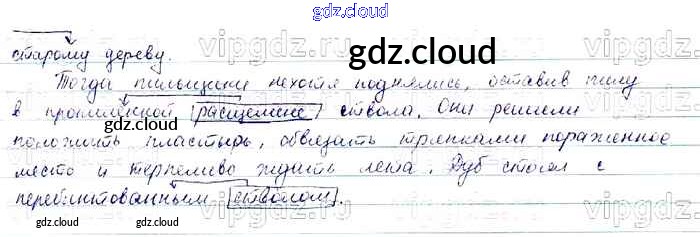 gdz.cloud
старому дереву.
gdz.cloud
Тогда пильщики нехотя поднялись, оставив пилу
в пропиленной расщелине ствола. Они решили
gdz.cloud
положить пластырь, обвязать тряпками пораженное
место и терпеливо ждать лета. Дуб стоял с
перебинтованным стволом.
gdz.cloud gdz.cloud gdz.cloud